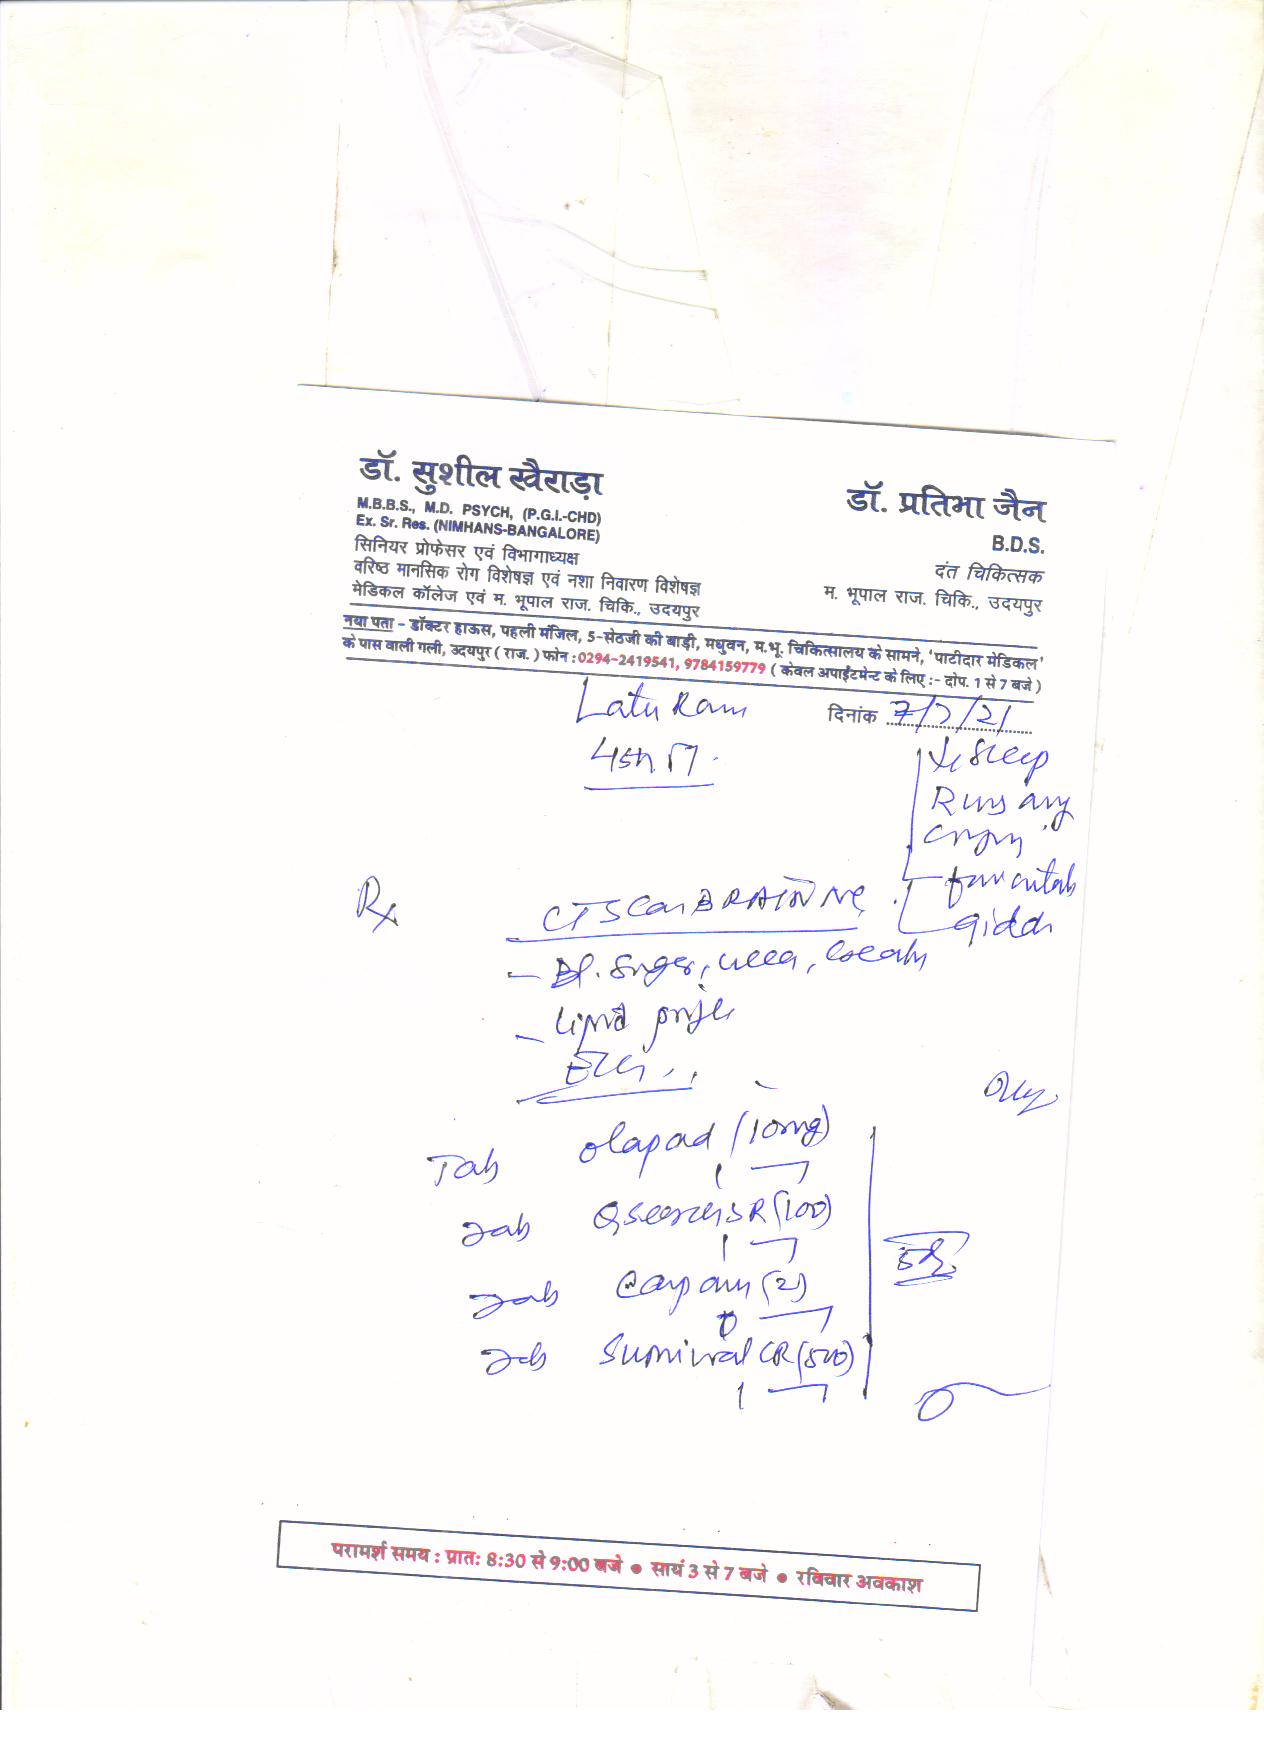 डॉ. सुशील खैराड़ा
M.B.B.S., M.D. PSYCH, (P.G.I.-CHD)
Ex. Sr. Res. (NIMHANS-BANGALORE)
सिनियर प्रोफेसर एवं विभागाध्यक्ष
वरिष्ठ मानसिक रोग विशेषज्ञ एवं नशा निवारण विशेषज्ञ
मेडिकल कॉलेज एवं म. भूपाल राज. चिकि., उदयपुर
डॉ. प्रतिभा जैन
B.D.S.
दंत चिकित्सक
म. भूपाल राज. चिकि., उदयपुर
नया पता – डॉक्टर हाऊस, पहली मंजिल, 5-सेठजी की बाड़ी, मधुवन, म.भू. चिकित्सालय के सामने, 'पाटीदार मेडिकल'
के पास वाली गली, उदयपुर ( राज. ) फोन : 0294-2419541, 9784159779 ( केवल अपाईंटमेन्ट के लिए :- दोप. 1 से 7 बजे )
Latu Ram
दिनांक 7/7/21
Sleep
Runs any
Rx
CT Scan BRAIN NC
- Bl. Sugar, urea,
- Lipid profile
Tab olapad (10mg)
1
Tab Qsearch SR (100)
1
Tab (2)
Tab CR (500)
1
परामर्श समय : प्रातः 8:30 से 9:00 बजे ● सायं 3 से 7 बजे ● रविवार अवकाश